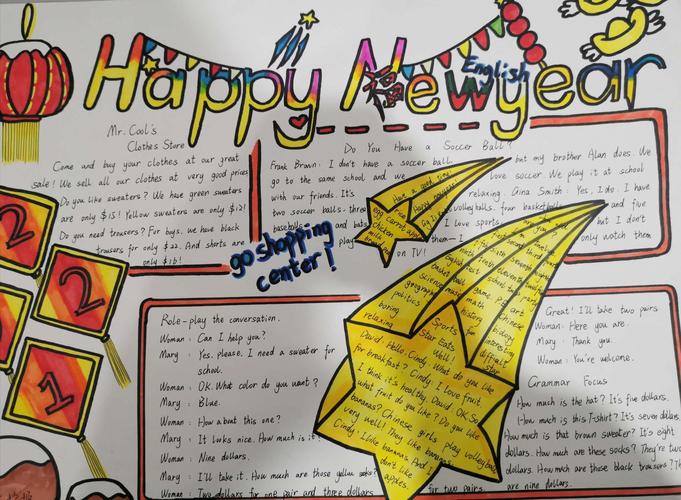 Happy New year
English
Mr. Cool's
Clothes Store
Come and buy your clothes at our great
sale! We sell all our clothes at very good prices
Do you like sweaters? We have green sweaters
are only $15! Yellow sweaters are only $12!
Do you need trousers? For boys, we have black
trousers for only $22. And shorts are
only $16!
Do You Have a Soccer Ball?
Frank Brown: I don't have a soccer ball, but my brother Alan does. We
go to the same school and we love soccer. We play it at school
with our friends. It's relaxing. Gina Smith: Yes, I do. I have
two soccer balls, three volleyballs, four basketballs and five
baseballs and bats. I love sports but I don't
play them— I only watch them
on TV!
Have a good time!
egg carrot apple
chicken
milk
bread
go shopping
center!
2
2
1
Role-play the conversation.
Woman: Can I help you?
Mary: Yes, please. I need a sweater for
school.
Woman: OK. What color do you want?
Mary: Blue.
Woman: How about this one?
Mary: It looks nice. How much is it?
Woman: Nine dollars.
Mary: I'll take it. How much are those yellow socks?
Woman: Two dollars for one pair and three dollars for two pairs.
geography
politics
boring
relaxing
science music math
history
biology
interesting
difficult
Chinese
P.E art
Sports
Star Eats
Well!
David: Hello. Cindy. What do you like
for breakfast? Cindy: I love fruit
I think it's healthy. David: OK. So
what fruit do you like? Do you like
bananas? Chinese girls play volleyball
very well! They like bananas
Cindy: I like bananas. And I
don't like
apples.
Great! I'll take two pairs
Woman: Here you are.
Mary: Thank you.
Woman: You're welcome.
Grammar Focus
How much is the hat? It's five dollars.
How much is this T-shirt? It's seven dollars.
How much is that brown sweater? It's eight
dollars. How much are these socks? They're two
dollars. How much are those black trousers?
are nine dollars.